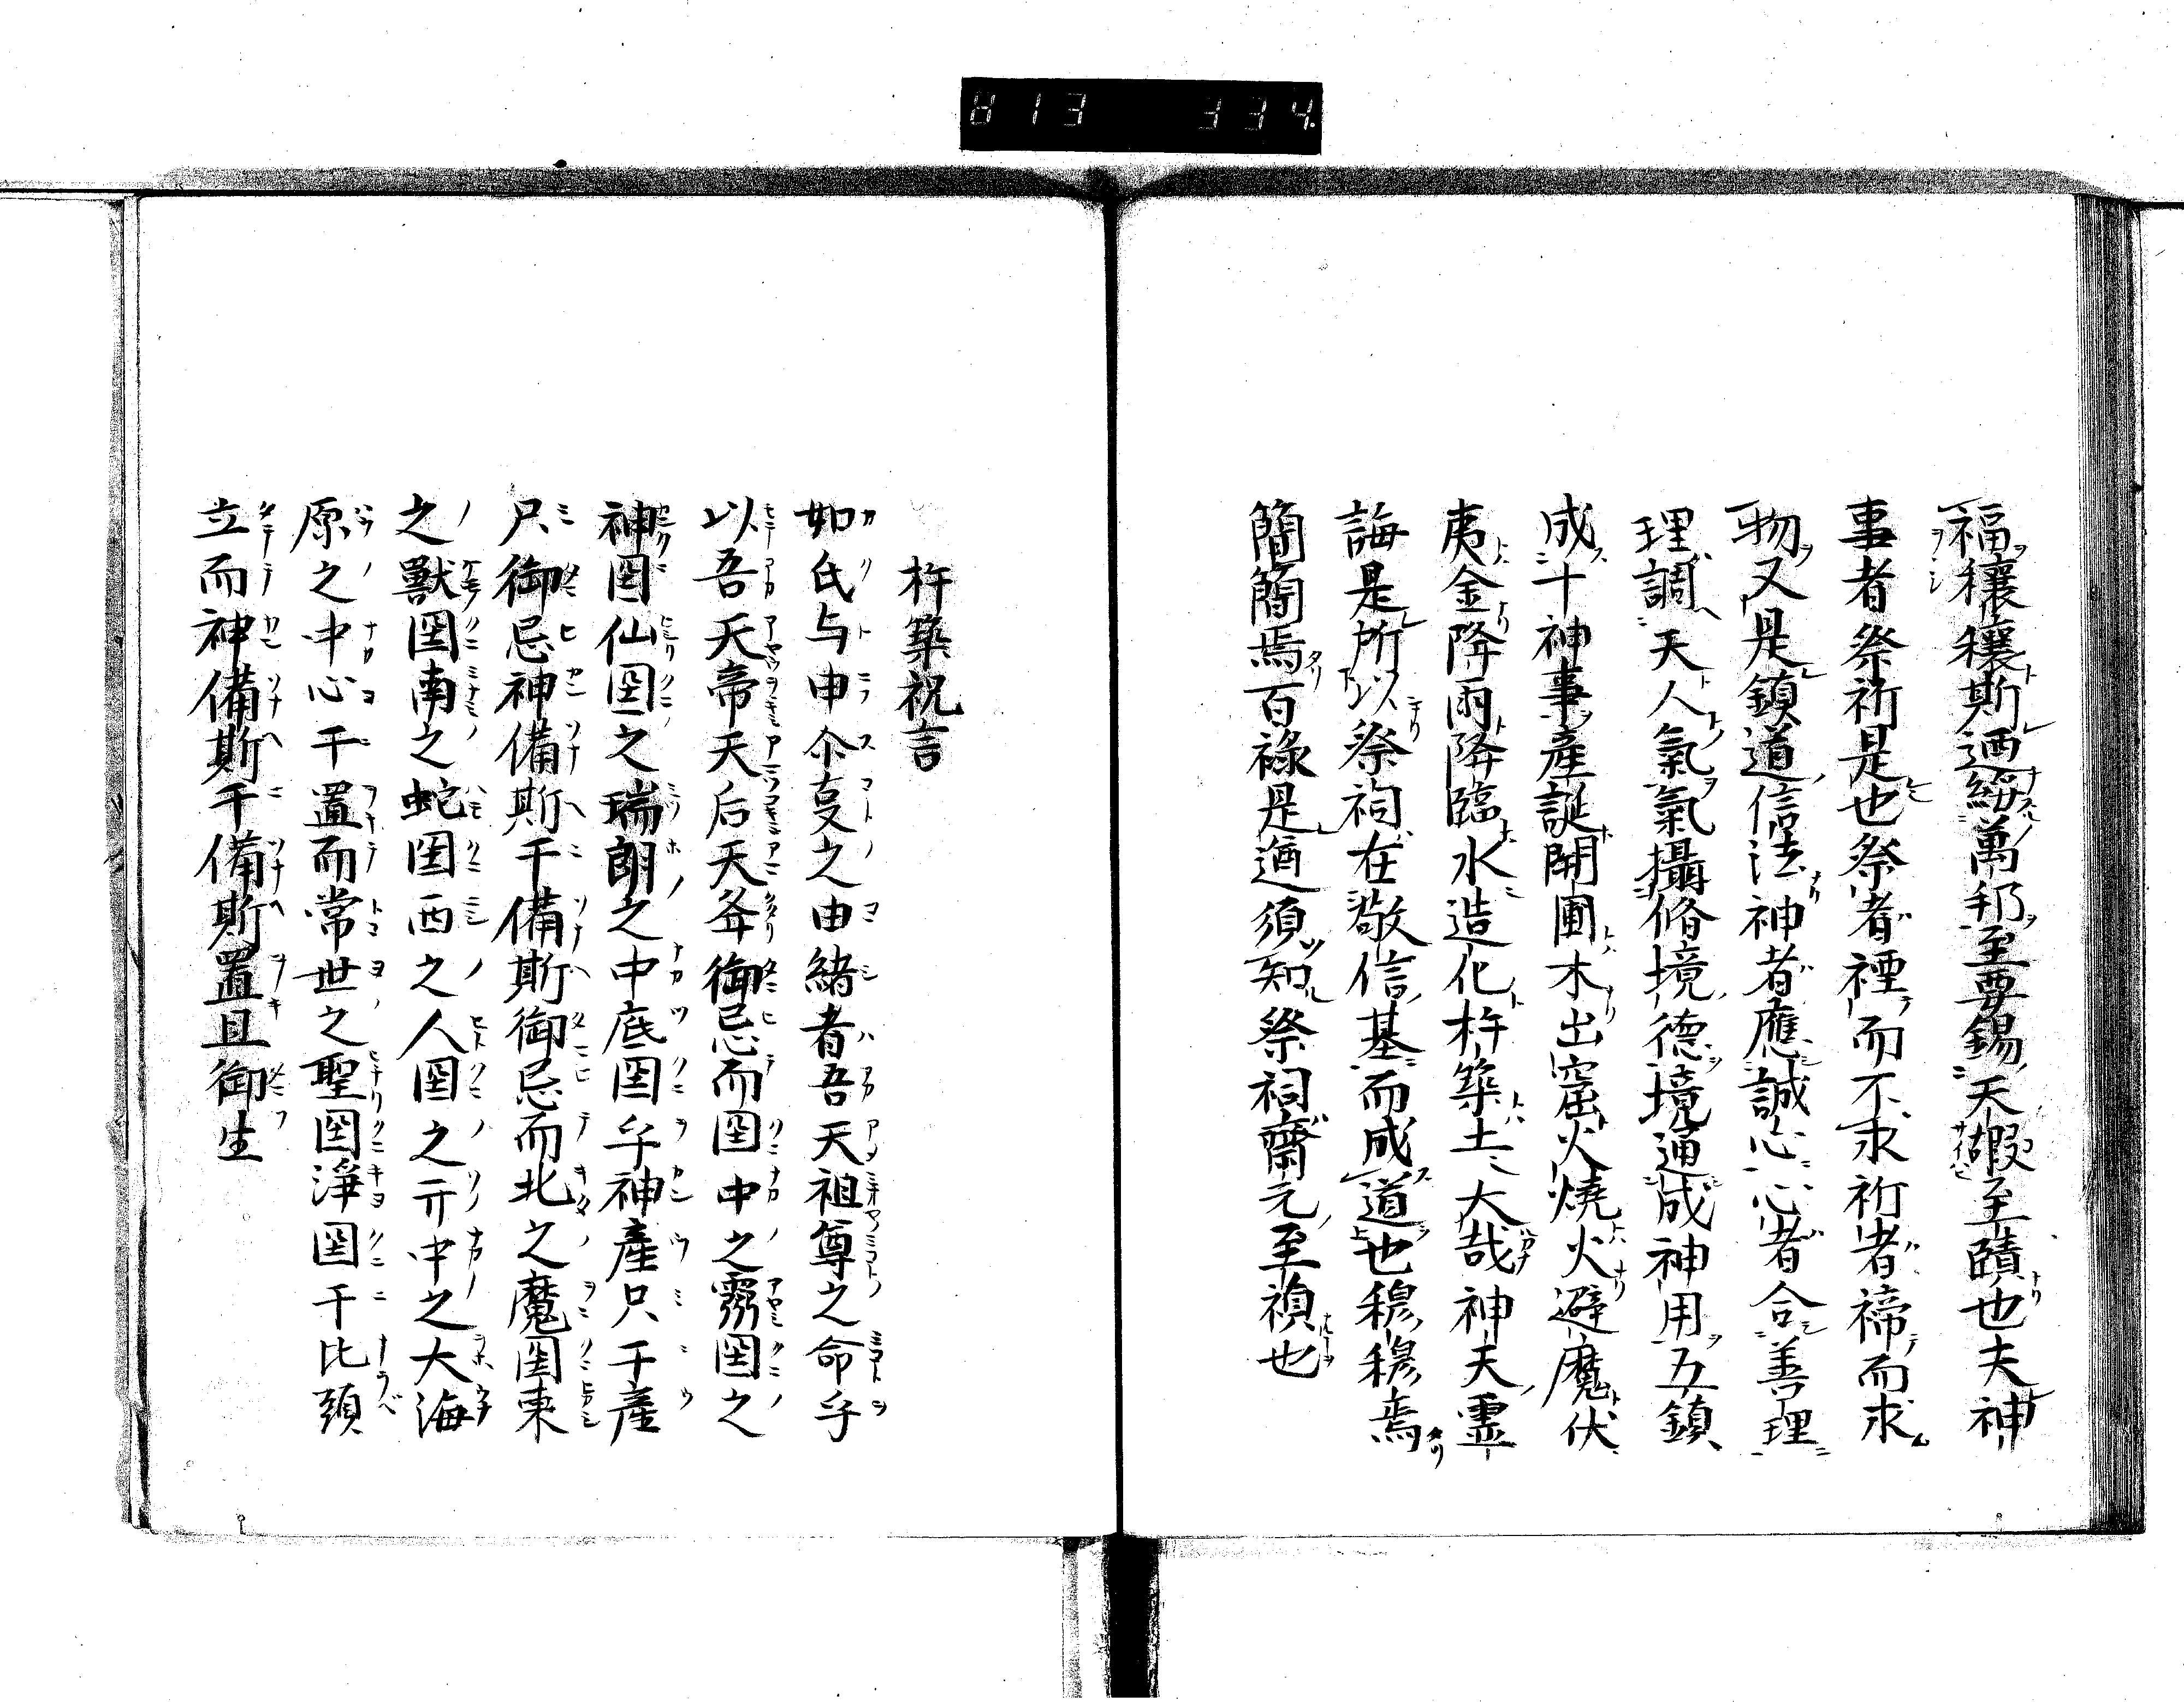 813 334
福穰穰斯迺綏萬邦至要錫天嘏至賾也夫神
事者祭祈是也祭者禋而不求祈者禘而求
物又是鎮道信法神者應誠心心者合善理
理調天人氣氣攝脩境德境通成神用五鎮
成十神事產誕開圃木出窟火燒火避魔伏
夷金降雨降臨水造化杵築土大哉神天靈
誨是所以祭祠在敬信基而成道也穆穆焉
簡簡焉百祿是遒須知祭祠齋元至禎也
杵築祝言
如氏与申介㕝之由緒者吾天祖尊之命乎
以吾天帝天后天 御忌而国中之霧国之
神国仙国之瑞朗之中底国乎神產只千產
只御忌神備斯千備斯御忌而北之魔国東
之獸国南之蛇国西之人国之亓中之大海
原之中心千置而常世之聖国淨国千比頭
立而神備斯千備斯置且御生